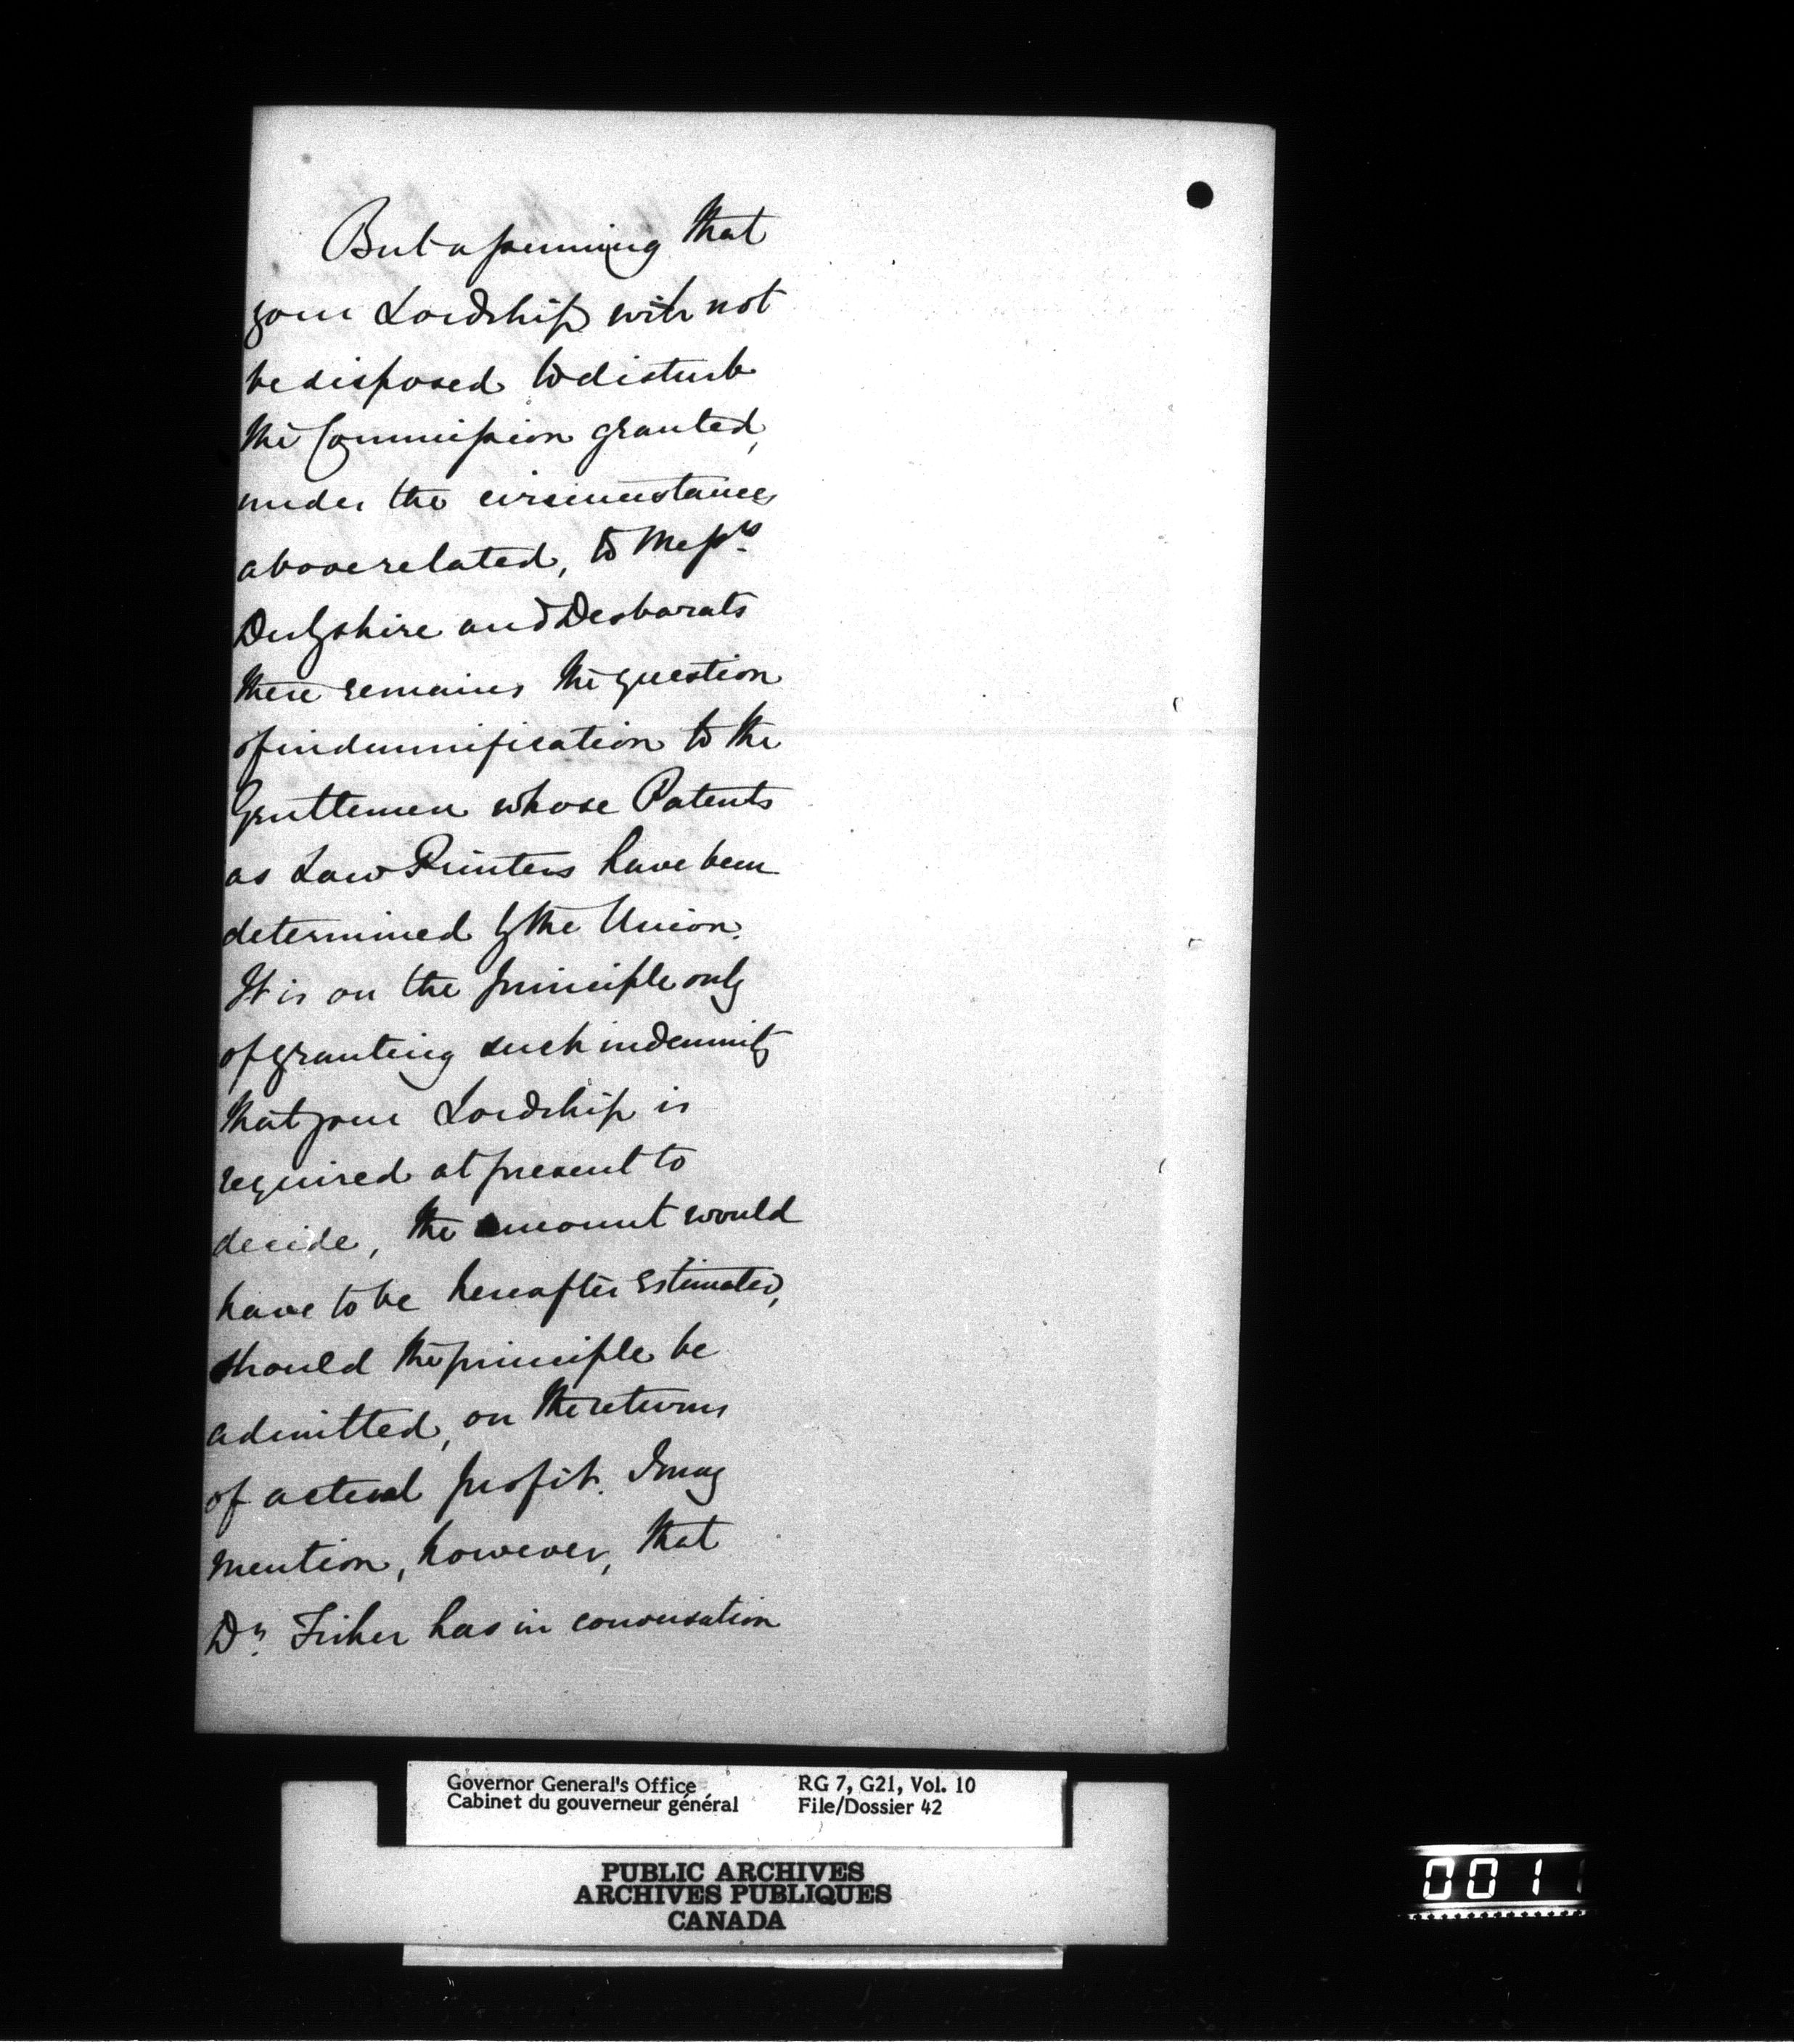 But assuming that
your Lordship will not
be disposed to disturb
the Commission granted,
under the circumstances
above related, to Messrs.
Derbyshire and Desbarats
there remains the question
of indemnification to the
Gentlemen whose Patents
as Law Printers have been
determined by the Union.
It is on the principle only
of granting such indemnity
that your Lordship is
required at present to
decide, the amount would
have to be hereafter estimated,
should the principle be
admitted, on the returns
of actual profit. I may
mention, however, that
Dr. Fisher has in conversation
Governor General's Office
Cabinet du gouverneur général
RG 7, G21, Vol. 10
File/Dossier 42
PUBLIC ARCHIVES
ARCHIVES PUBLIQUES
CANADA
0011